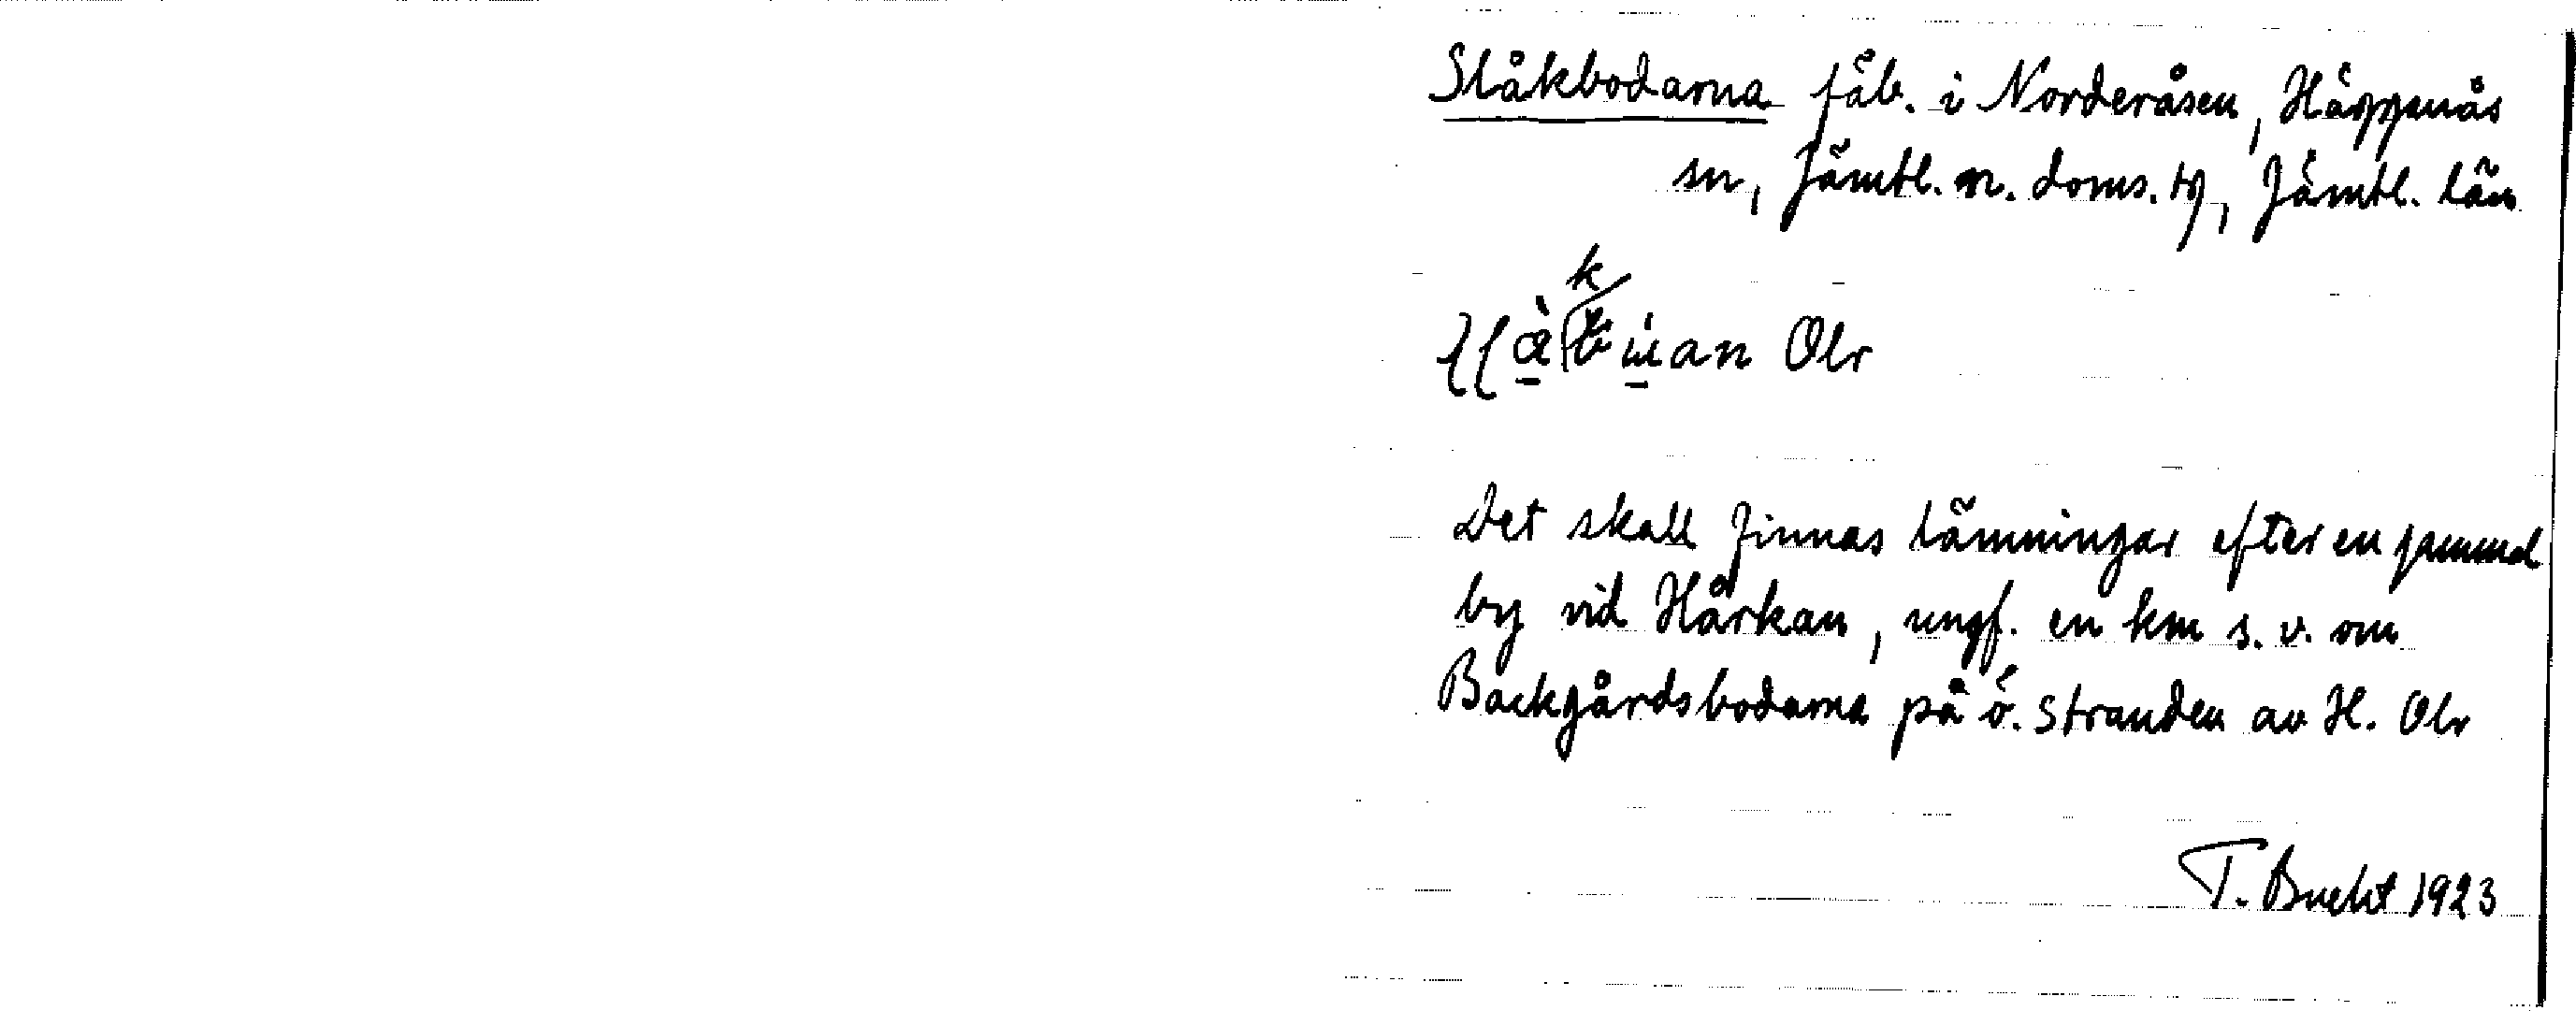 Slåkbodarna fäb. i Norderåsen, Häggenås
sn, Jämtl. n. doms. tg, Jämtl. län
k
Olr
Det skall finnas lämningar efter en gammal
by vid Hårkan, ungf. en km s. v. om
Backgårdsbodarna på ö. stranden av H. Olr
T. Bucht 1923